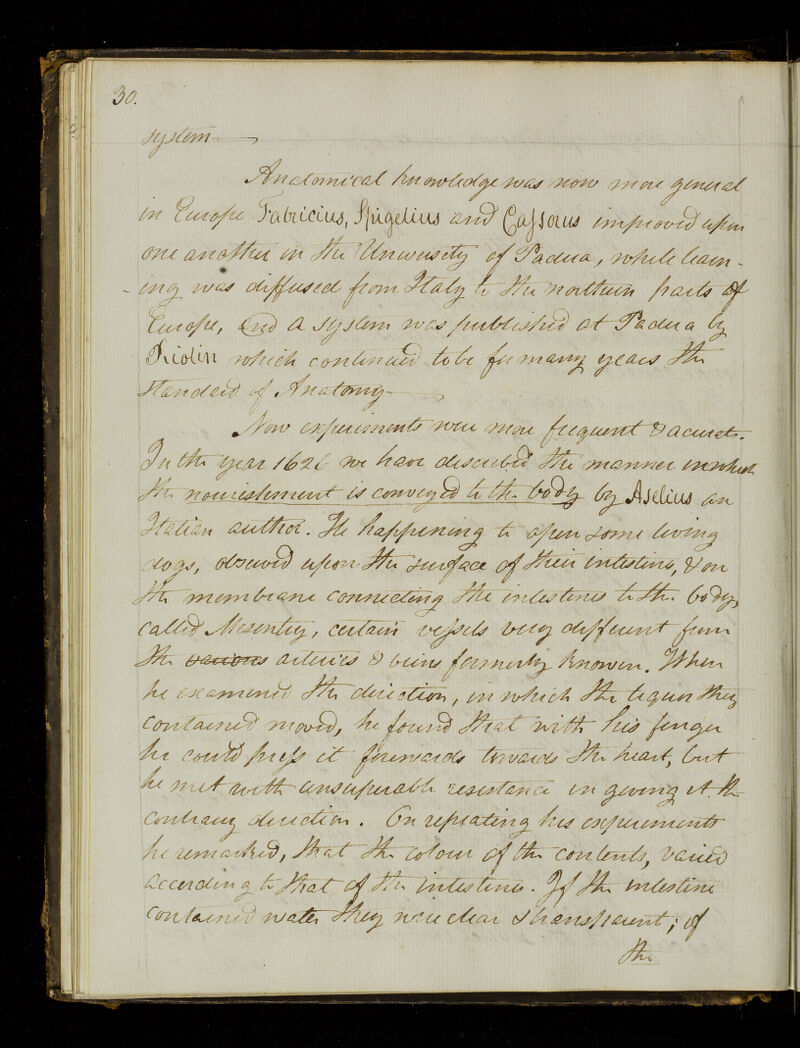 30.
system
Anatomical knowledge was now more general
in Europe. Fabricius, Spigelius and Casserus improved upon
one another in the University of Padua, while learn-
-ing was diffused from Italy to the northern parts of
Europe, and a system was published at Padua by
Riolin which continued to be for many years the
standard of Anatomy
Now experiments were more frequent & acurate.
In the year 1626 we have described the manner in which
the nourishment is conveyed to the body by Aselius an
Italian author. He happening to open some living
dogs, observed upon the surface of their intestine, & on
the membrane connecting the intestines to the body,
called Mesentry, certain vessels very different from
the various arteries & veins formerly known. When
he examined the direction, in which the liquor they
contained moved, he found that with his finger
he could press it forwards towards the heart, but
he met with unsuperable resistance in giving it the
contrary direction. On repeating his experiments
he remarked, that the colour of the contents, varied
according to that of the intestines. If the intestine
contained water they were clear & transparent; if
the